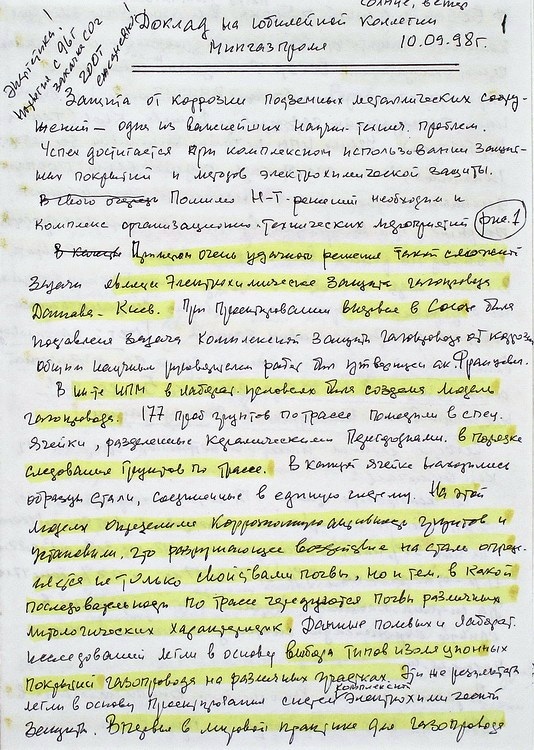 солнце, ветер
Доклад на юбилейной коллегии
1
Мингазпрома 10.09.98г.
Энергетика!
Начиная с 91г
закачка СО2
200т
ежедневно!
Защита от коррозии подземных металлических соору-
жений – одна из важнейших научн.-технич. проблем.
Успех достигается при комплексном использовании защит-
ных покрытий и методов электрохимической защиты.
В свою очередь Помимо Н-Т-решений необходим и
комплекс организационно-технических мероприятий рис.1
Примером очень удачного решения такой сложной
задачи явилась Электрохимическое защита газопровода
Дашава-Киев. При проектировании впервые в Союзе была
поставлена задача комплексной защиты газопровода от коррозии
Общим научным руководителем работ был утвержден ак. Францевич.
В ин-те ИПМ в лаборат. условиях была создана модель
газопровода. 177 проб грунтов по трассе поместили в спец.
ячейки, разделенные керамическими перегородками. в порядке
следования грунтов по трассе. В каждой ячейке находились
образцы стали, соединенные в единую систему. На этой
моделях определили коррозионную активность грунтов и
установили, что разрушающее воздействие на сталь опред-
ляется не только свойствами почвы, но и тем, в какой
последовательности по трассе чередуются почвы различных
литологических характеристик. Данные полевых и лаборат.
исследований легли в основу выбора типов изоляционных
покрытий газопровода на различных участках. Эти же результаты
легли в основу проектирования систем комплексной Электрохимической
защиты. Впервые в мировой практике для газопровода